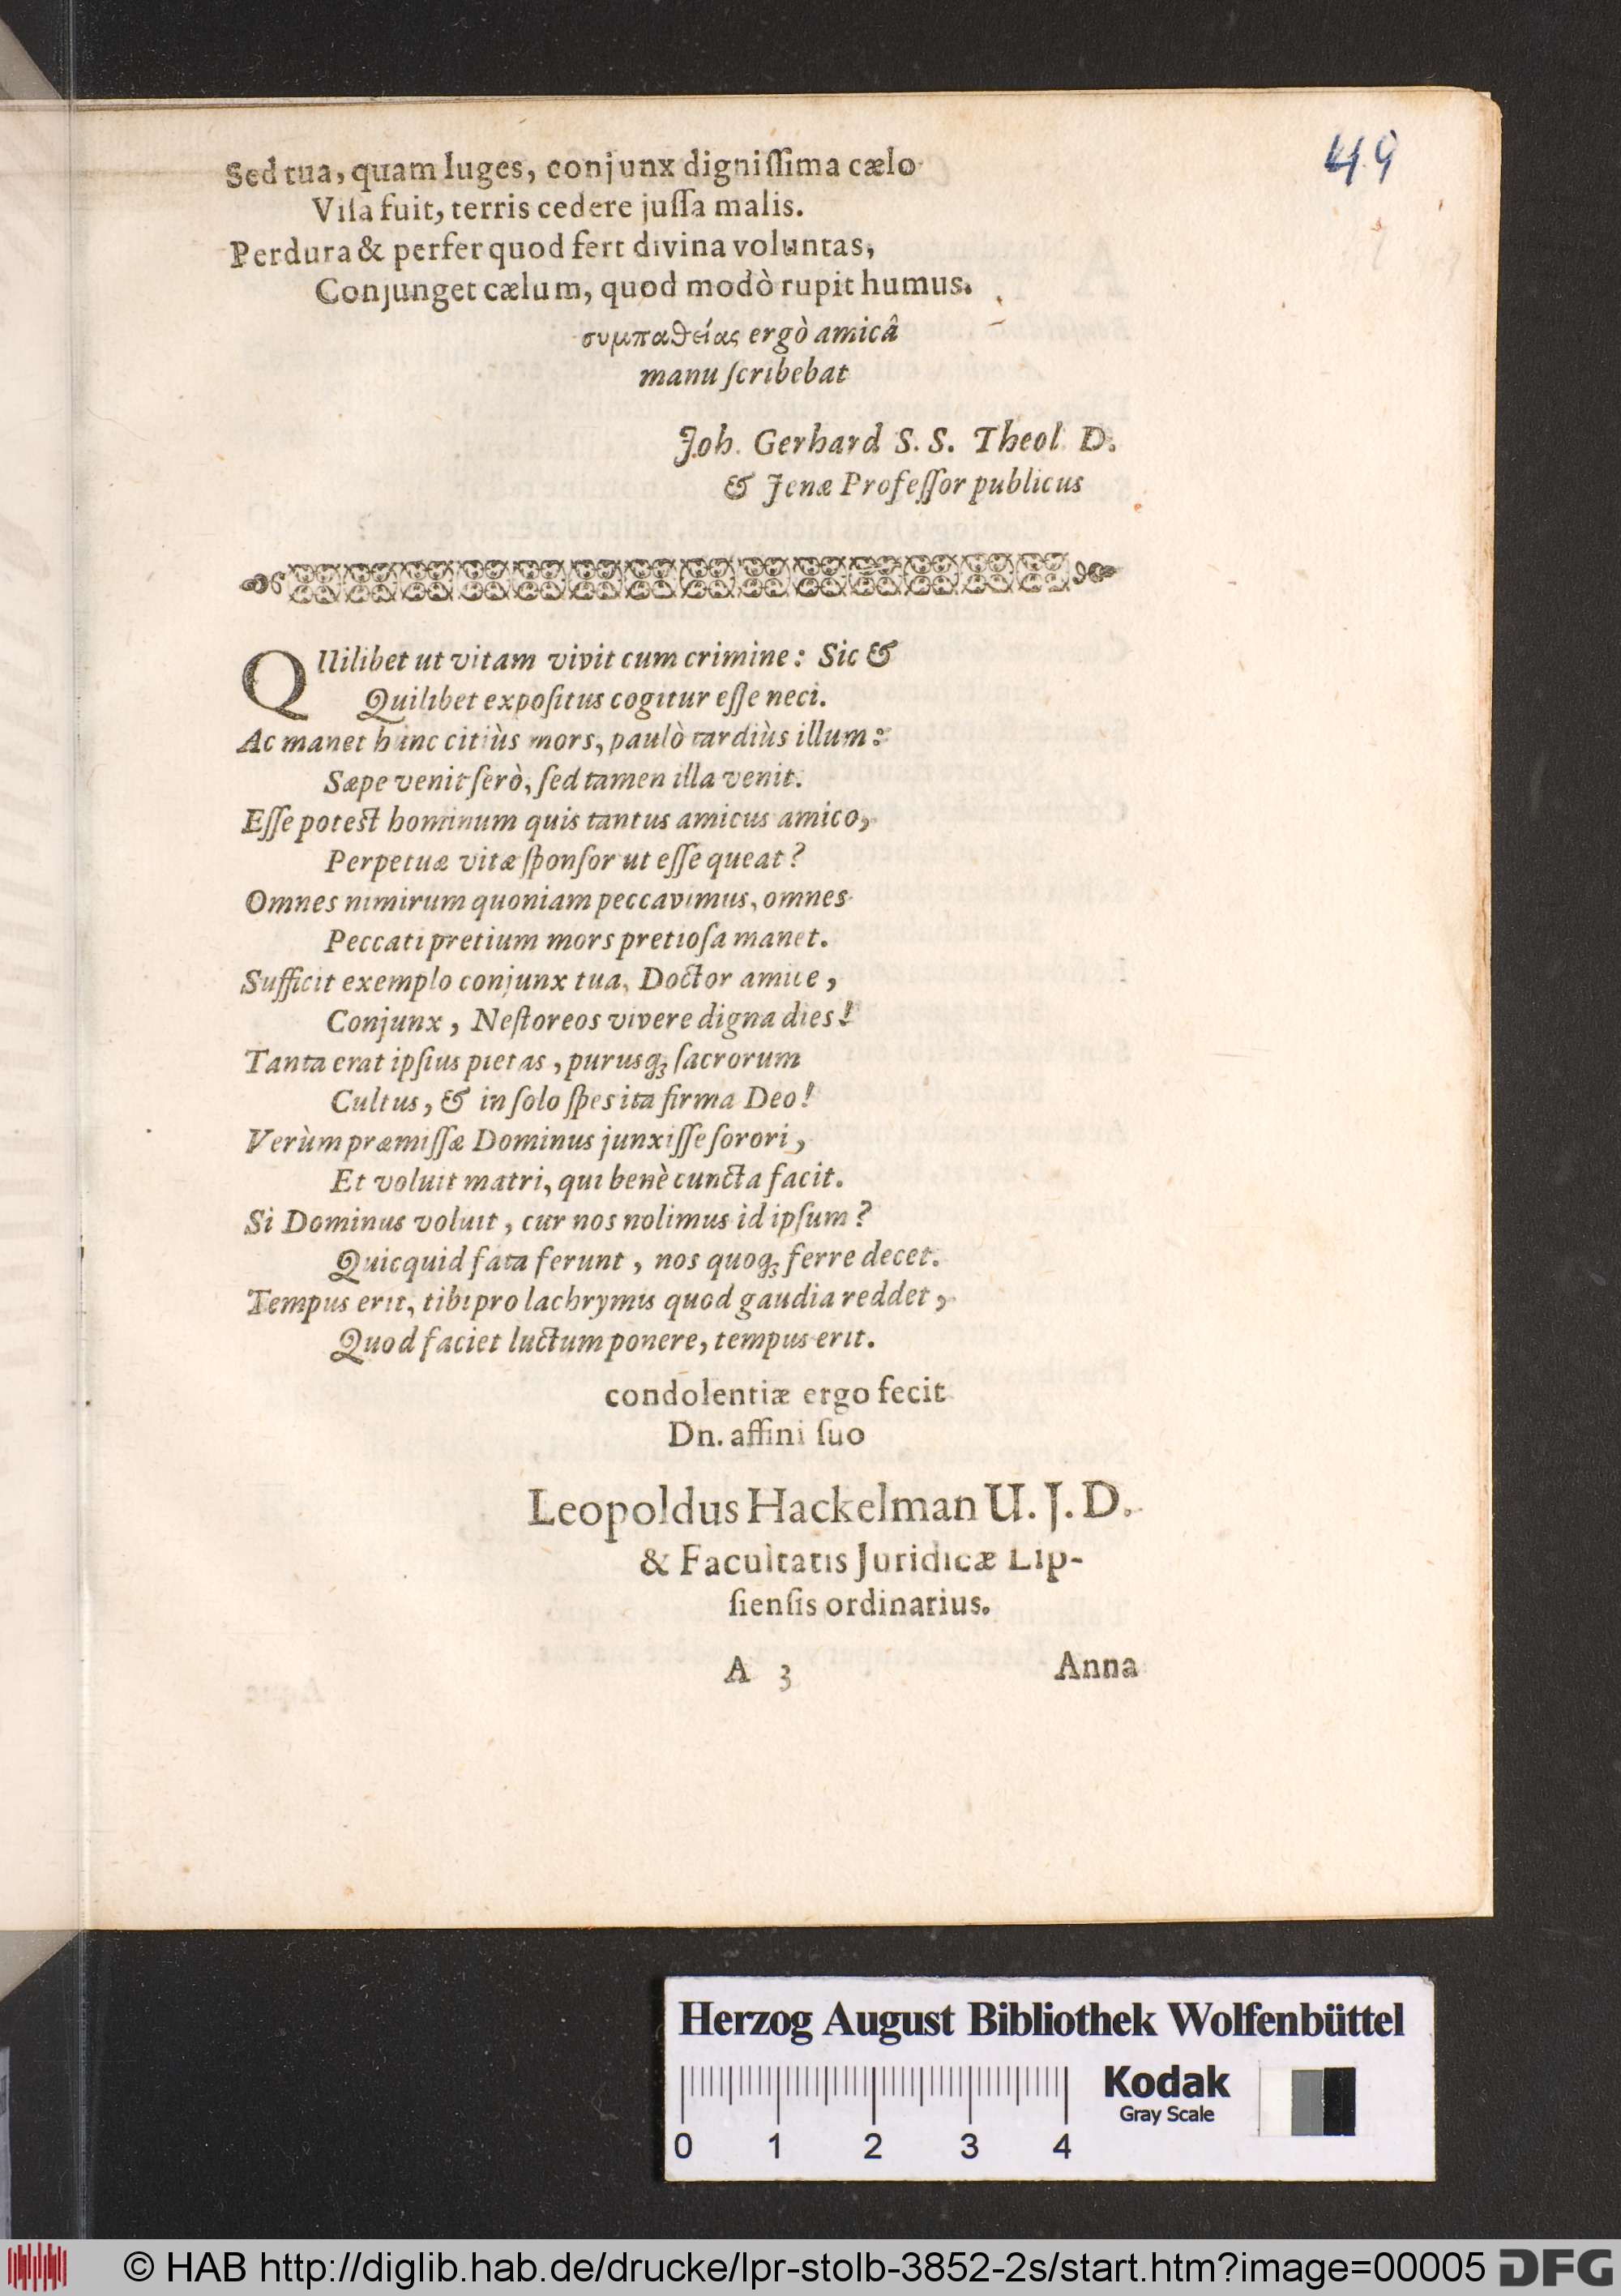 49
Sed tua, quam luges, conjunx digniſſima cælo
Viſa fuit, terris cedere juſſa malis.
Perdura & perfer quod fert divina voluntas,
Conjunget cælum, quod modò rupit humus.
συμπαθείας ergò amicâ
manu ſcribebat
Joh. Gerhard S. S. Theol. D.
& Jenæ Profeſſor publicus
QUilibet ut vitam vivit cum crimine: Sic &
Quilibet expoſitus cogitur eſſe neci.
Ac manet hunc citiùs mors, paulò tardiùs illum:
Sæpe venit ſerò, ſed tamen illa venit.
Eſſe poteſt hominum quis tantus amicus amico,
Perpetuæ vitæ ſponſor ut eſſe queat?
Omnes nimirum quoniam peccavimus, omnes
Peccati pretium mors pretioſa manet.
Sufficit exemplo conjunx tua, Doctor amice,
Conjunx, Neſtoreos vivere digna dies!
Tanta erat ipſius pietas, purusq; ſacrorum
Cultus, & in ſolo ſpes ita firma Deo!
Verùm præmiſſæ Dominus junxiſſe ſorori,
Et voluit matri, qui benè cuncta facit.
Si Dominus voluit, cur nos nolimus id ipſum?
Quicquid fata ferunt, nos quoq; ferre decet.
Tempus erit, tibi pro lachrymis quod gaudia reddet,
Quod faciet luctum ponere, tempus erit.
condolentiæ ergo fecit
Dn. affini ſuo
Leopoldus Hackelman U. J. D.
& Facultatis Juridicæ Lip-
ſienſis ordinarius.
A 3 Anna
Herzog August Bibliothek Wolfenbüttel
Kodak
Gray Scale
0 1 2 3 4
© HAB http://diglib.hab.de/drucke/lpr-stolb-3852-2s/start.htm?image=00005 DFG